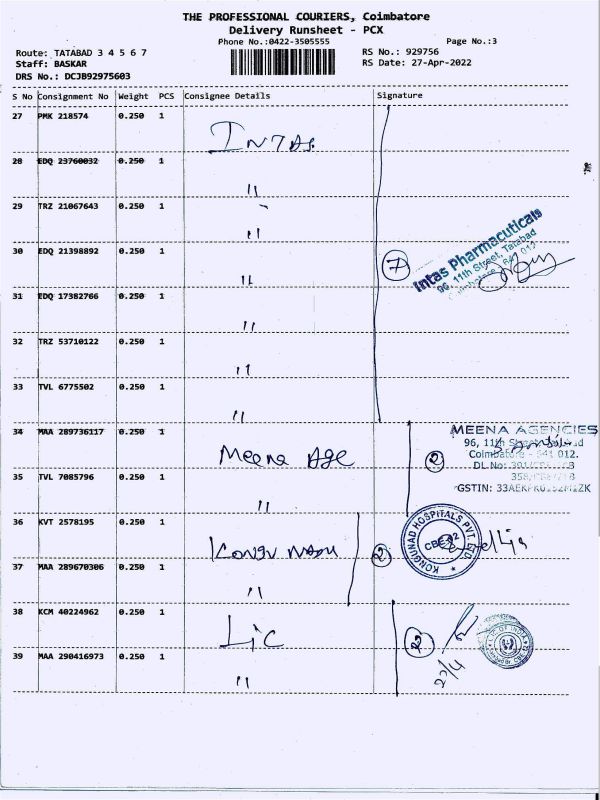 THE PROFESSIONAL COURIERS, Coimbatore
Delivery Runsheet - PCX
Phone No.:0422-3505555 Page No.:3
Route: TATABAD 3 4 5 6 7 RS No.: 929756
Staff: BASKAR RS Date: 27-Apr-2022
DRS No.: DCJB92975603
S No Consignment No Weight PCS Consignee Details Signature
27 PMK 218574 0.250 1
INTAS
28 EDQ 23760032 0.250 1
"
29 TRZ 21067643 0.250 1
"
30 EDQ 21398892 0.250 1
"
31 EDQ 17382766 0.250 1
"
32 TRZ 53710122 0.250 1
"
33 TVL 6775502 0.250 1
"
7
Intas Pharmacuticals
96, 11th Street, Tatabad
Coimbatore - 641 012
34 MAA 289736117 0.250 1
Meena Age
35 TVL 7085796 0.250 1
"
2
MEENA AGENCIES
96, 11th
Coimbatore - 641 012.
DL.No:
GSTIN:
36 KVT 2578195 0.250 1
Kongu nadu
37 MAA 289670306 0.250 1
"
2
KONGUNAD HOSPITALS PVT. LTD.
38 KCM 40224962 0.250 1
Lic
39 MAA 290416973 0.250 1
"
2
L.I.C. OF INDIA